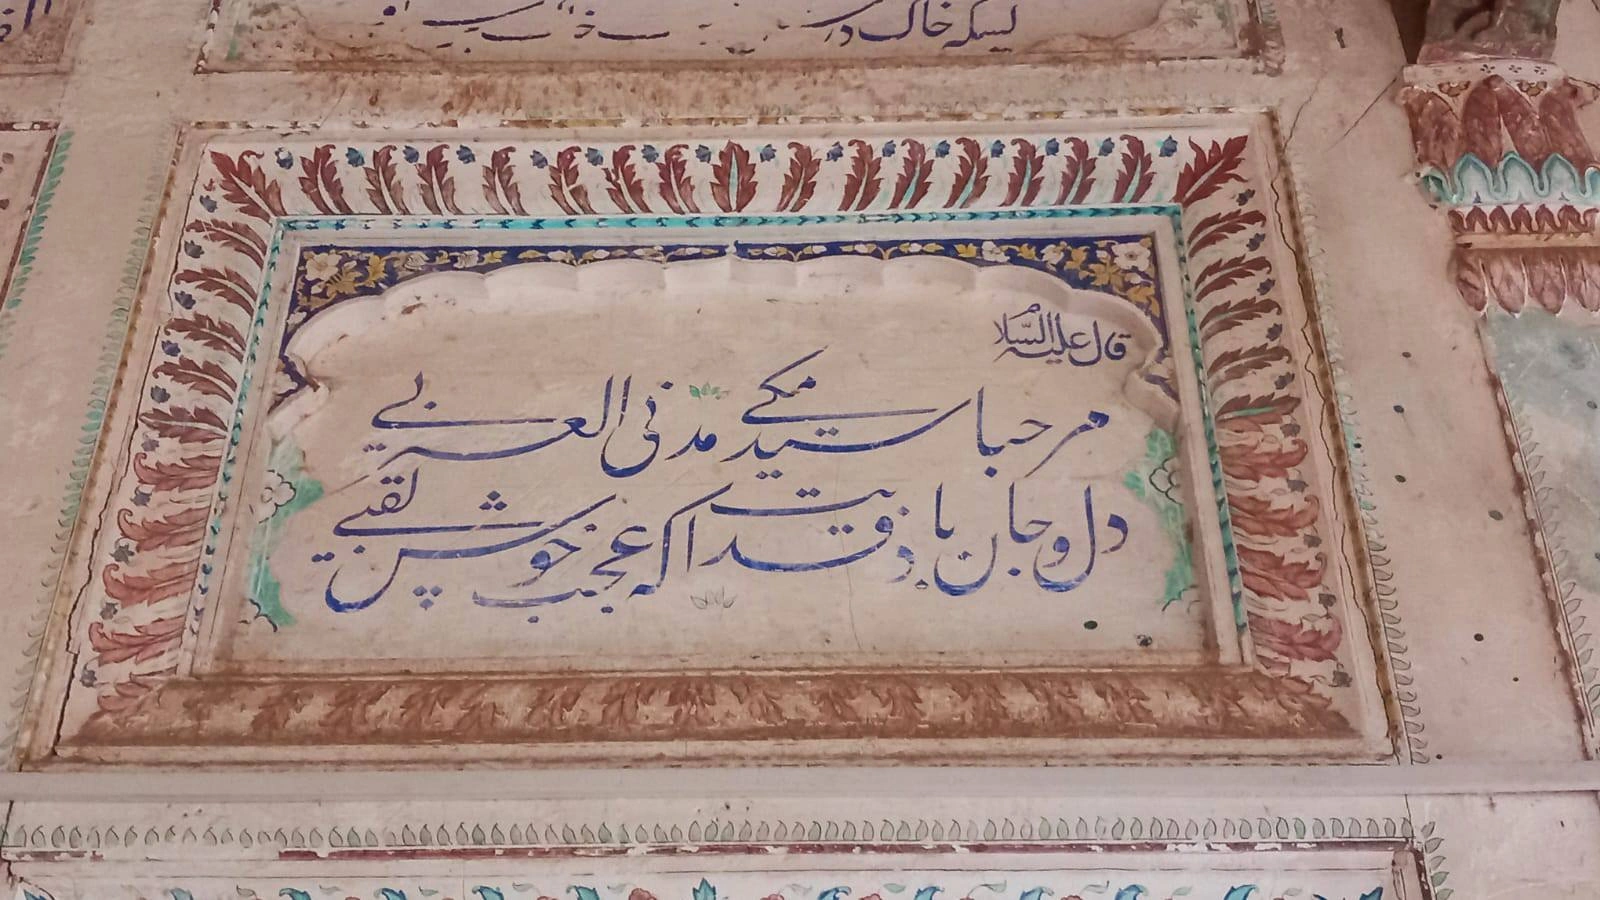 کیسکہ خاک در
قال علیہ السلام
مرحبا سید مکے مدنی العربی
دل و جان باد فدایت کہ عجب خوش لقبی